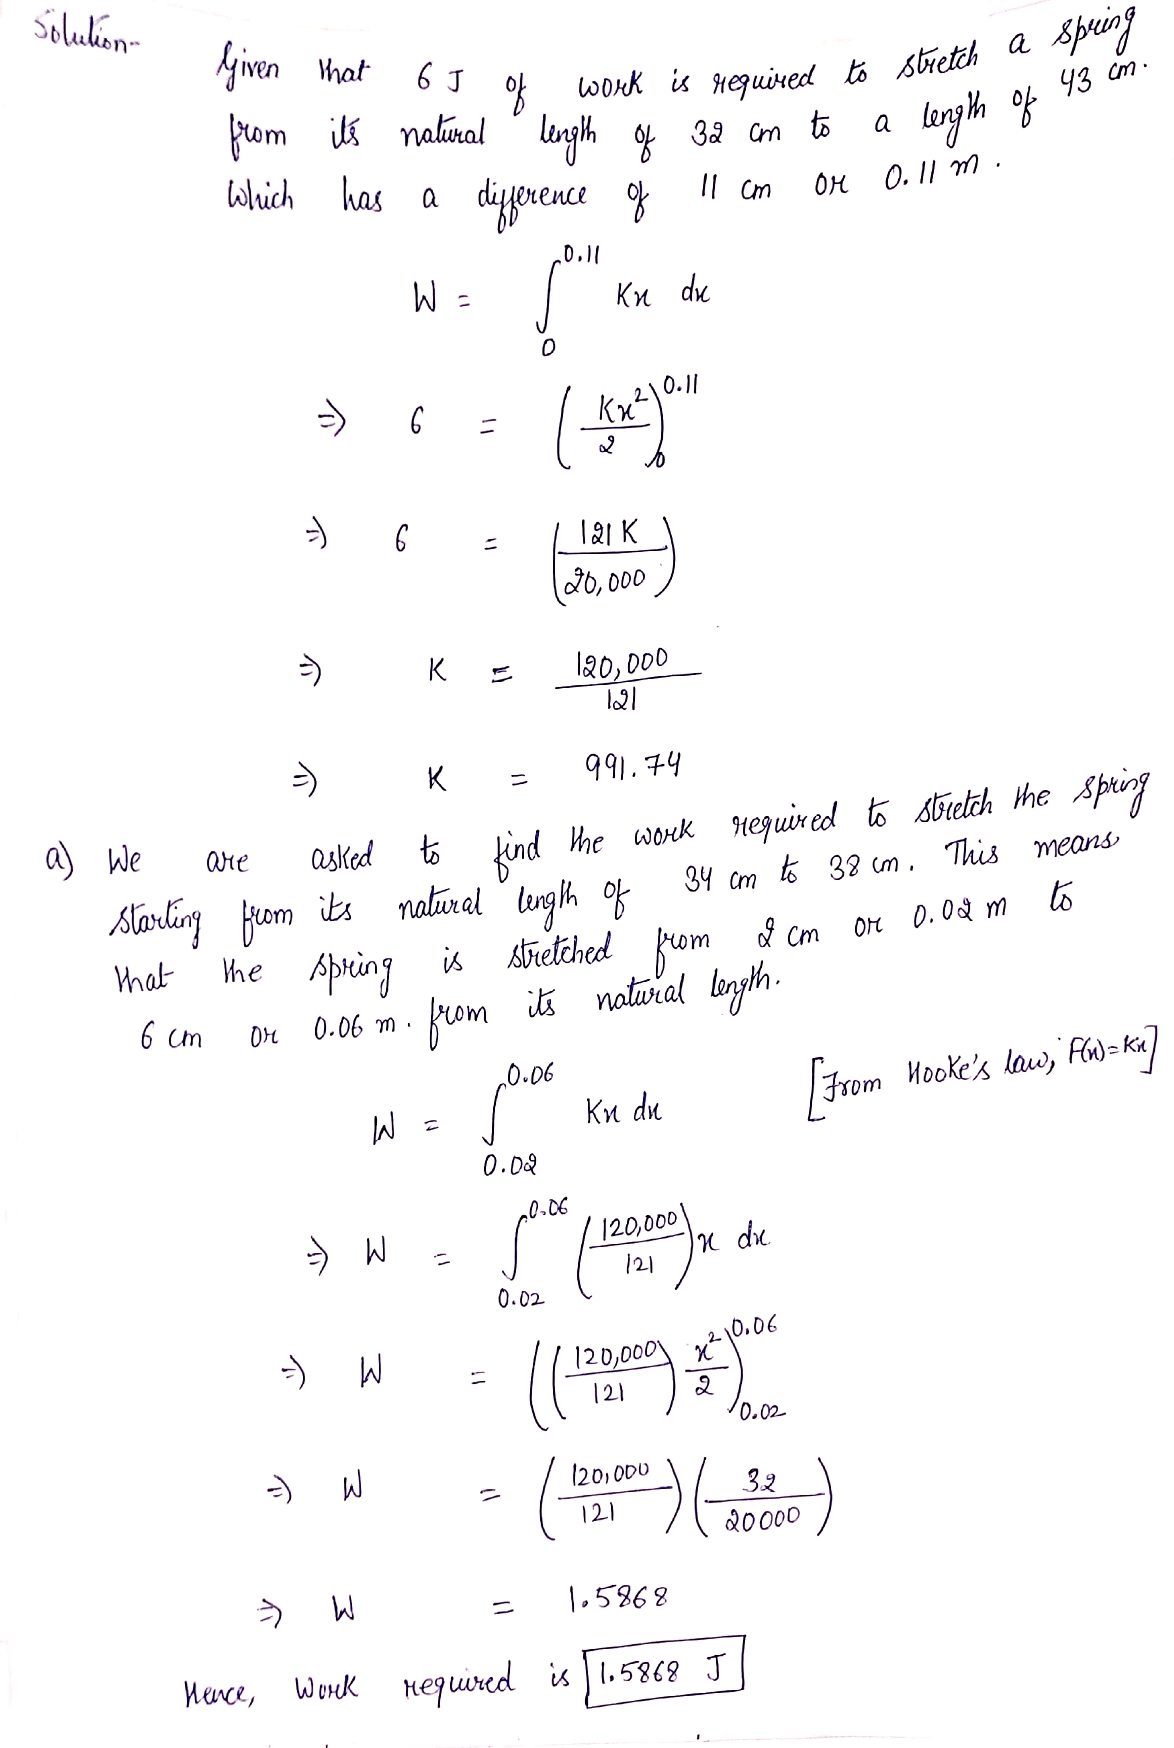 Solution-
Given that 6 J of work is required to stretch a spring
from its natural length of 32 cm to a length of 43 cm.
Which has a difference of 11 cm or 0.11 m.
W = ∫₀^0.11 Kx dx
⇒ 6 = (Kx²/2)₀^0.11
⇒ 6 = (121K/20,000)
⇒ K = 120,000/121
⇒ K = 991.74
a) We are asked to find the work required to stretch the spring
starting from its natural length of 34 cm to 38 cm. This means
that the spring is stretched from 2 cm or 0.02 m to
6 cm or 0.06 m. from its natural length.
W = ∫_0.02^0.06 Kx dx [From Hooke's law, F(x)=Kx]
⇒ W = ∫_0.02^0.06 (120,000/121)x dx
⇒ W = ((120,000/121) x²/2)_0.02^0.06
⇒ W = (120,000/121)(32/20000)
⇒ W = 1.5868
Hence, Work required is 1.5868 J